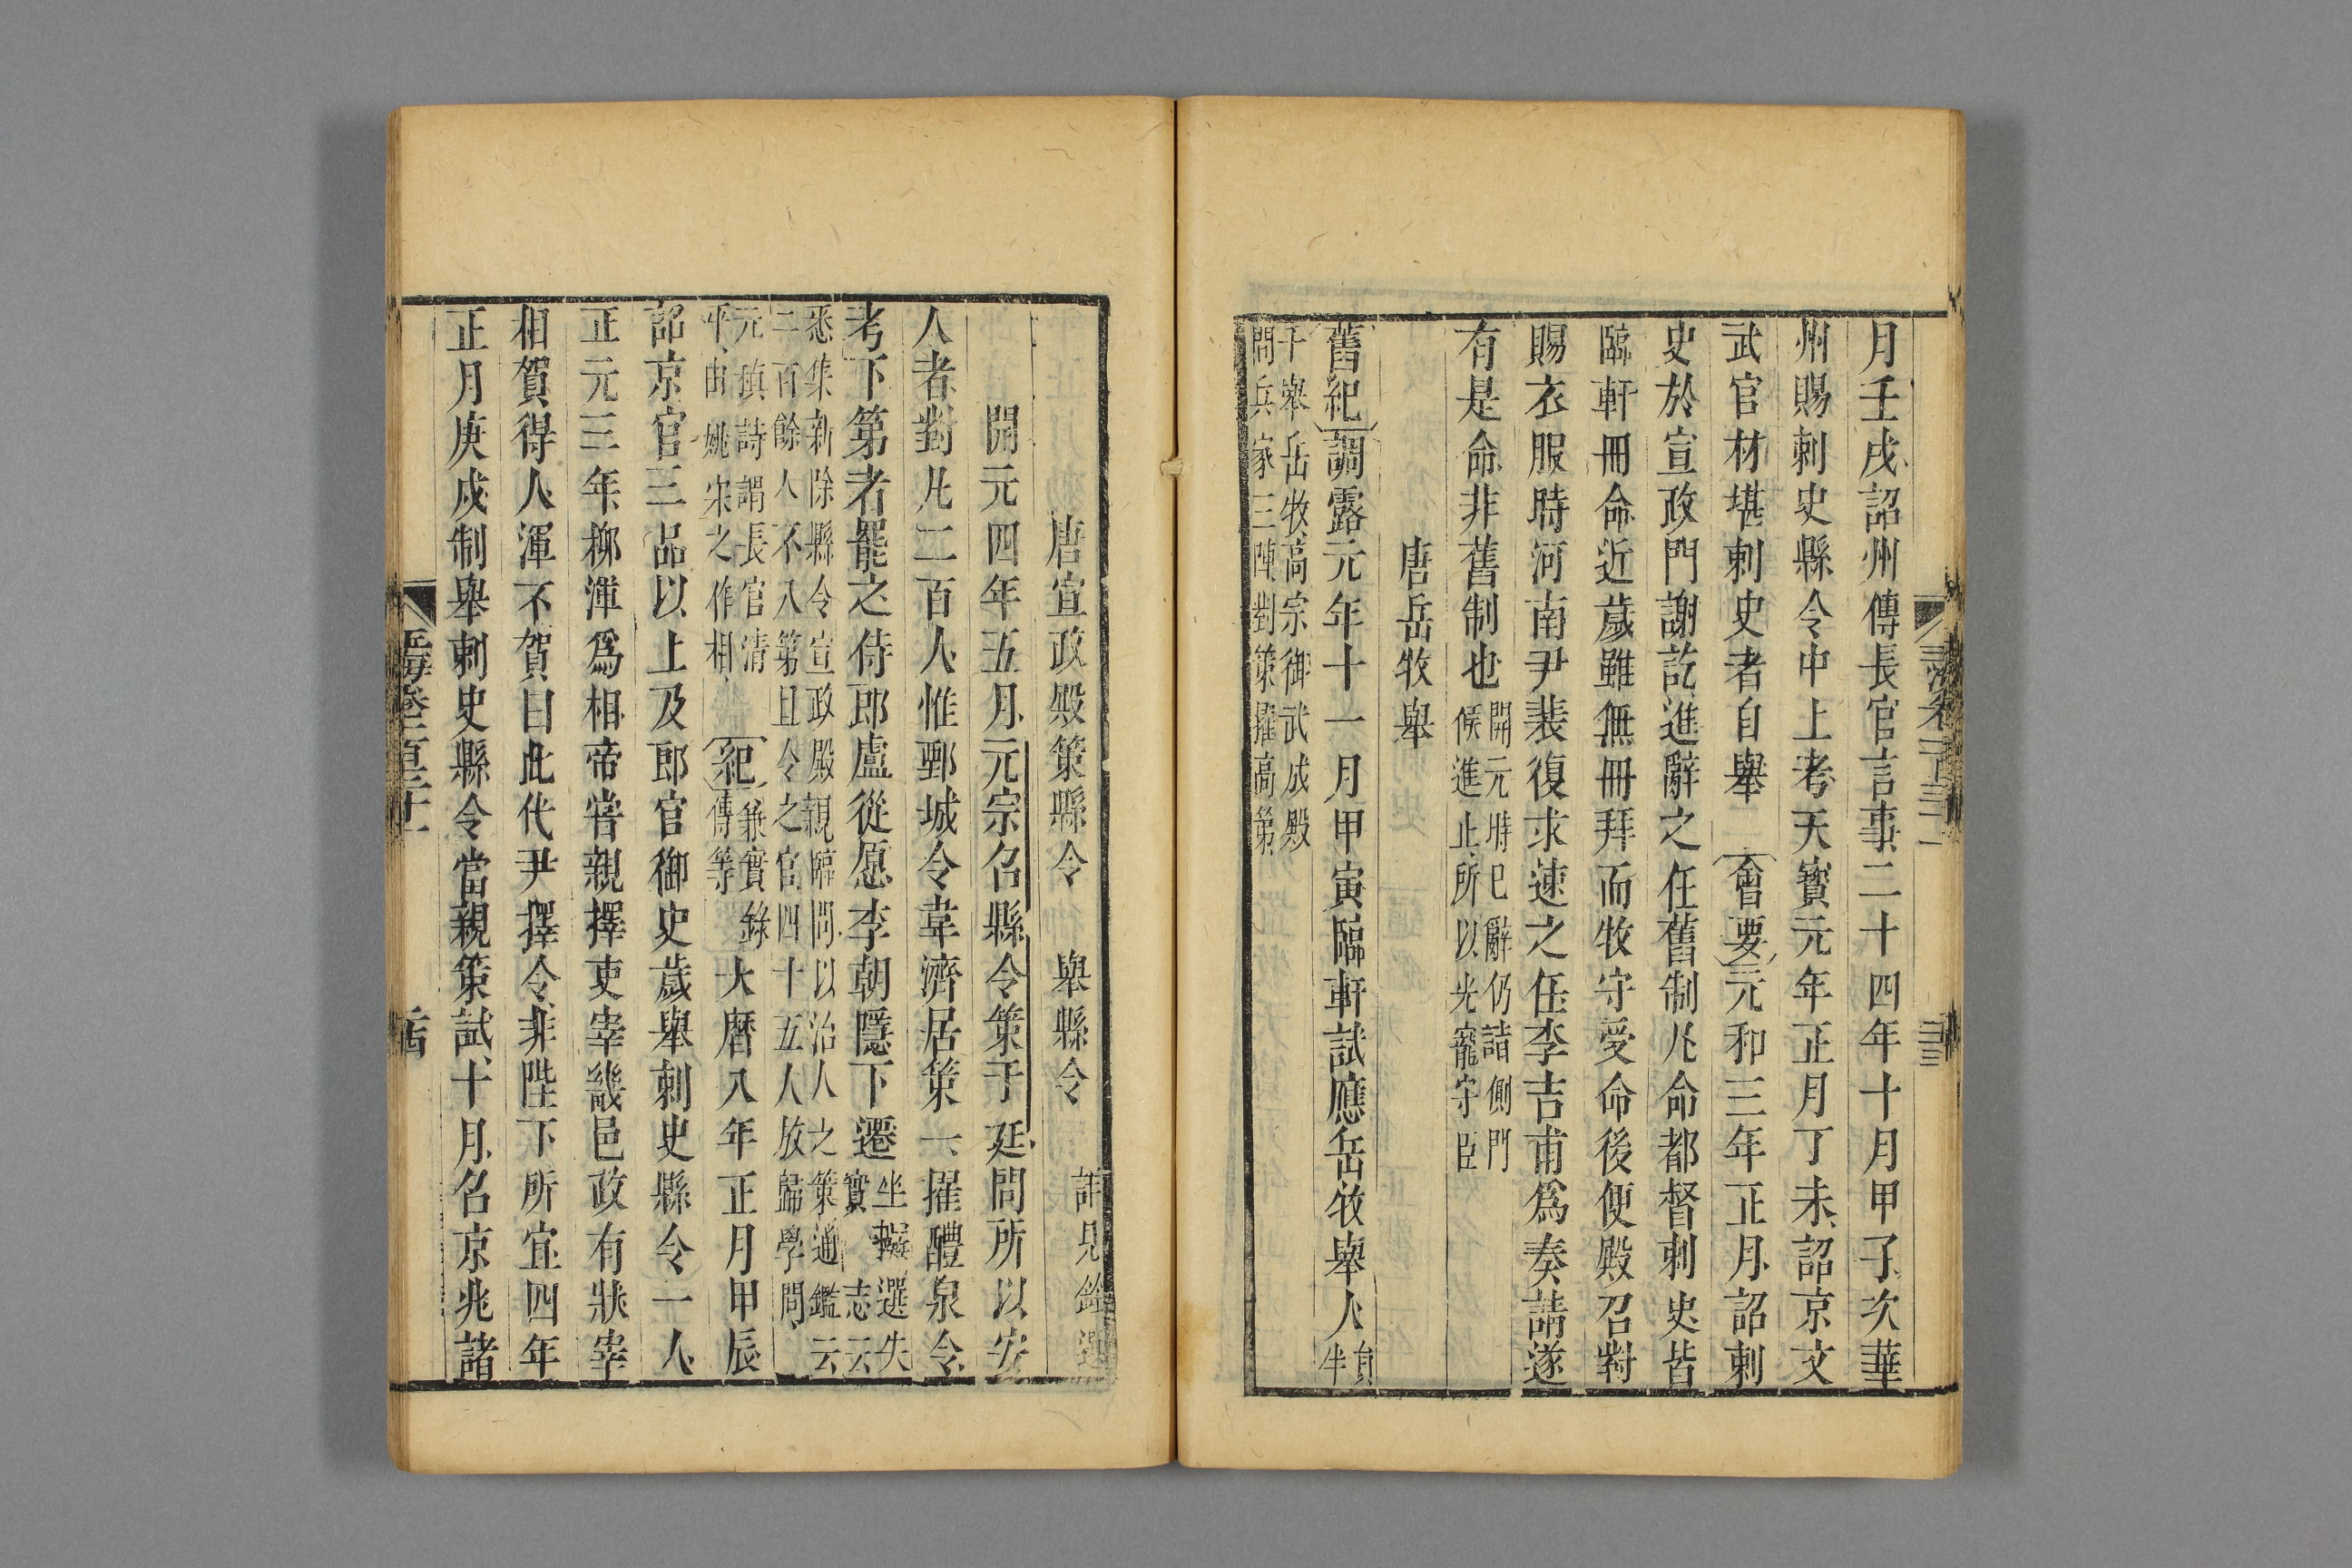 月壬戌詔州傳長官言事二十四年十月甲子次華
州賜刺史縣令中上考天寶元年正月丁未詔京文
武官材堪刺史者自舉會要元和三年正月詔刺
史於宣政門謝訖進辭之任舊制凡命都督刺史皆
臨軒冊命近歲雖無冊拜而牧守受命後便殿召對
賜衣服時河南尹裴復求速之任李吉甫爲奏請遂
有是命非舊制也開元時已辭仍詣側門
候進止所以光寵守臣
唐岳牧舉
舊紀調露元年十一月甲寅臨軒試應岳牧舉人員半
千舉岳牧高宗御武成殿
問兵家三陣對策擢高第
唐宣政殿策縣令 舉縣令 詳見銓選
開元四年五月元宗召縣令策于廷問所以安
人者對凡二百人惟鄄城令韋濟居策一擢醴泉令
考下第者罷之侍郎盧從愿李朝隱下遷坐擬選失
實 志云
悉集新除縣令宣政殿親臨問以治人之策通鑑云
二百餘人不入第且令之官四十五人放歸學問
元稹詩謂長官清
平由姚宋之作相紀兼實錄
傳等大曆八年正月甲辰
詔京官三品以上及郎官御史歲舉刺史縣令一人
正元三年柳渾爲相帝嘗親擇吏宰畿邑政有狀宰
相賀得人渾不賀曰此代尹擇令非陛下所宜四年
正月庚戌制舉刺史縣令當親策試十月召京兆諸